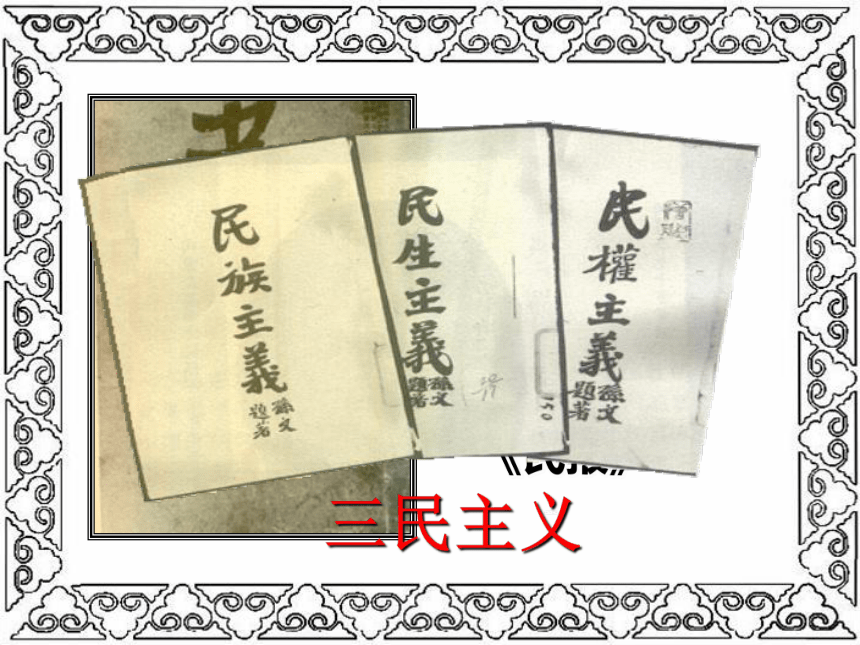 民族主義
孫文
題著
民生主義
孫文
題著
民權主義
孫文
題著
150
《民报》
三民主义